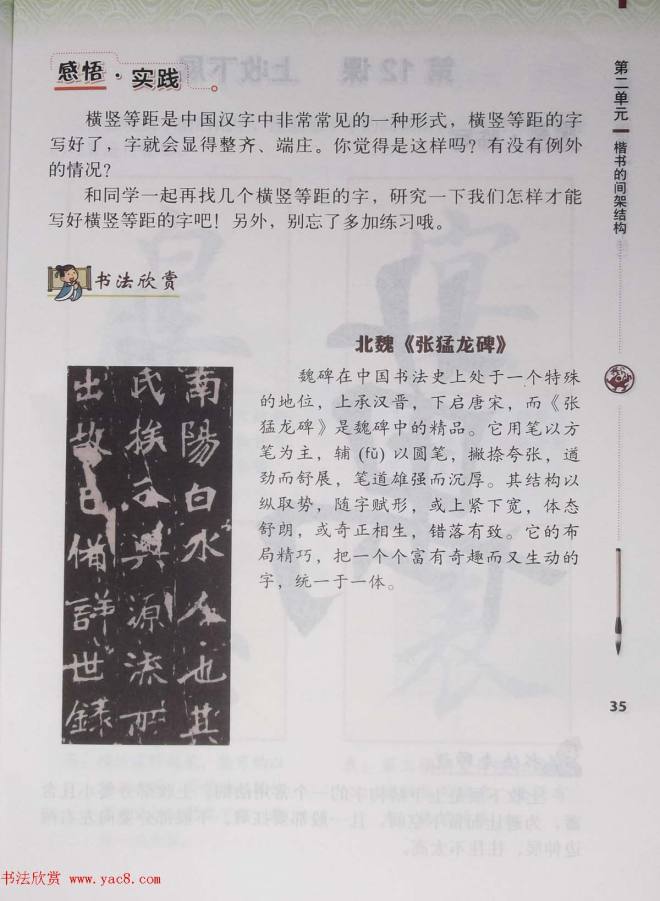 感悟·实践
横竖等距是中国汉字中非常常见的一种形式，横竖等距的字
写好了，字就会显得整齐、端庄。你觉得是这样吗？有没有例外
的情况？
和同学一起再找几个横竖等距的字，研究一下我们怎样才能
写好横竖等距的字吧！另外，别忘了多加练习哦。
书法欣赏
北魏《张猛龙碑》
魏碑在中国书法史上处于一个特殊
的地位，上承汉晋，下启唐宋，而《张
猛龙碑》是魏碑中的精品。它用笔以方
笔为主，辅 (fǔ) 以圆笔，撇捺夸张，遒
劲而舒展，笔道雄强而沉厚。其结构以
纵取势，随字赋形，或上紧下宽，体态
舒朗，或奇正相生，错落有致。它的布
局精巧，把一个个富有奇趣而又生动的
字，统一于一体。
南陽白水人也其
氏族之興源流所
出故已備詳世録
第二单元
楷书的间架结构
35
书法欣赏 www.yac8.com